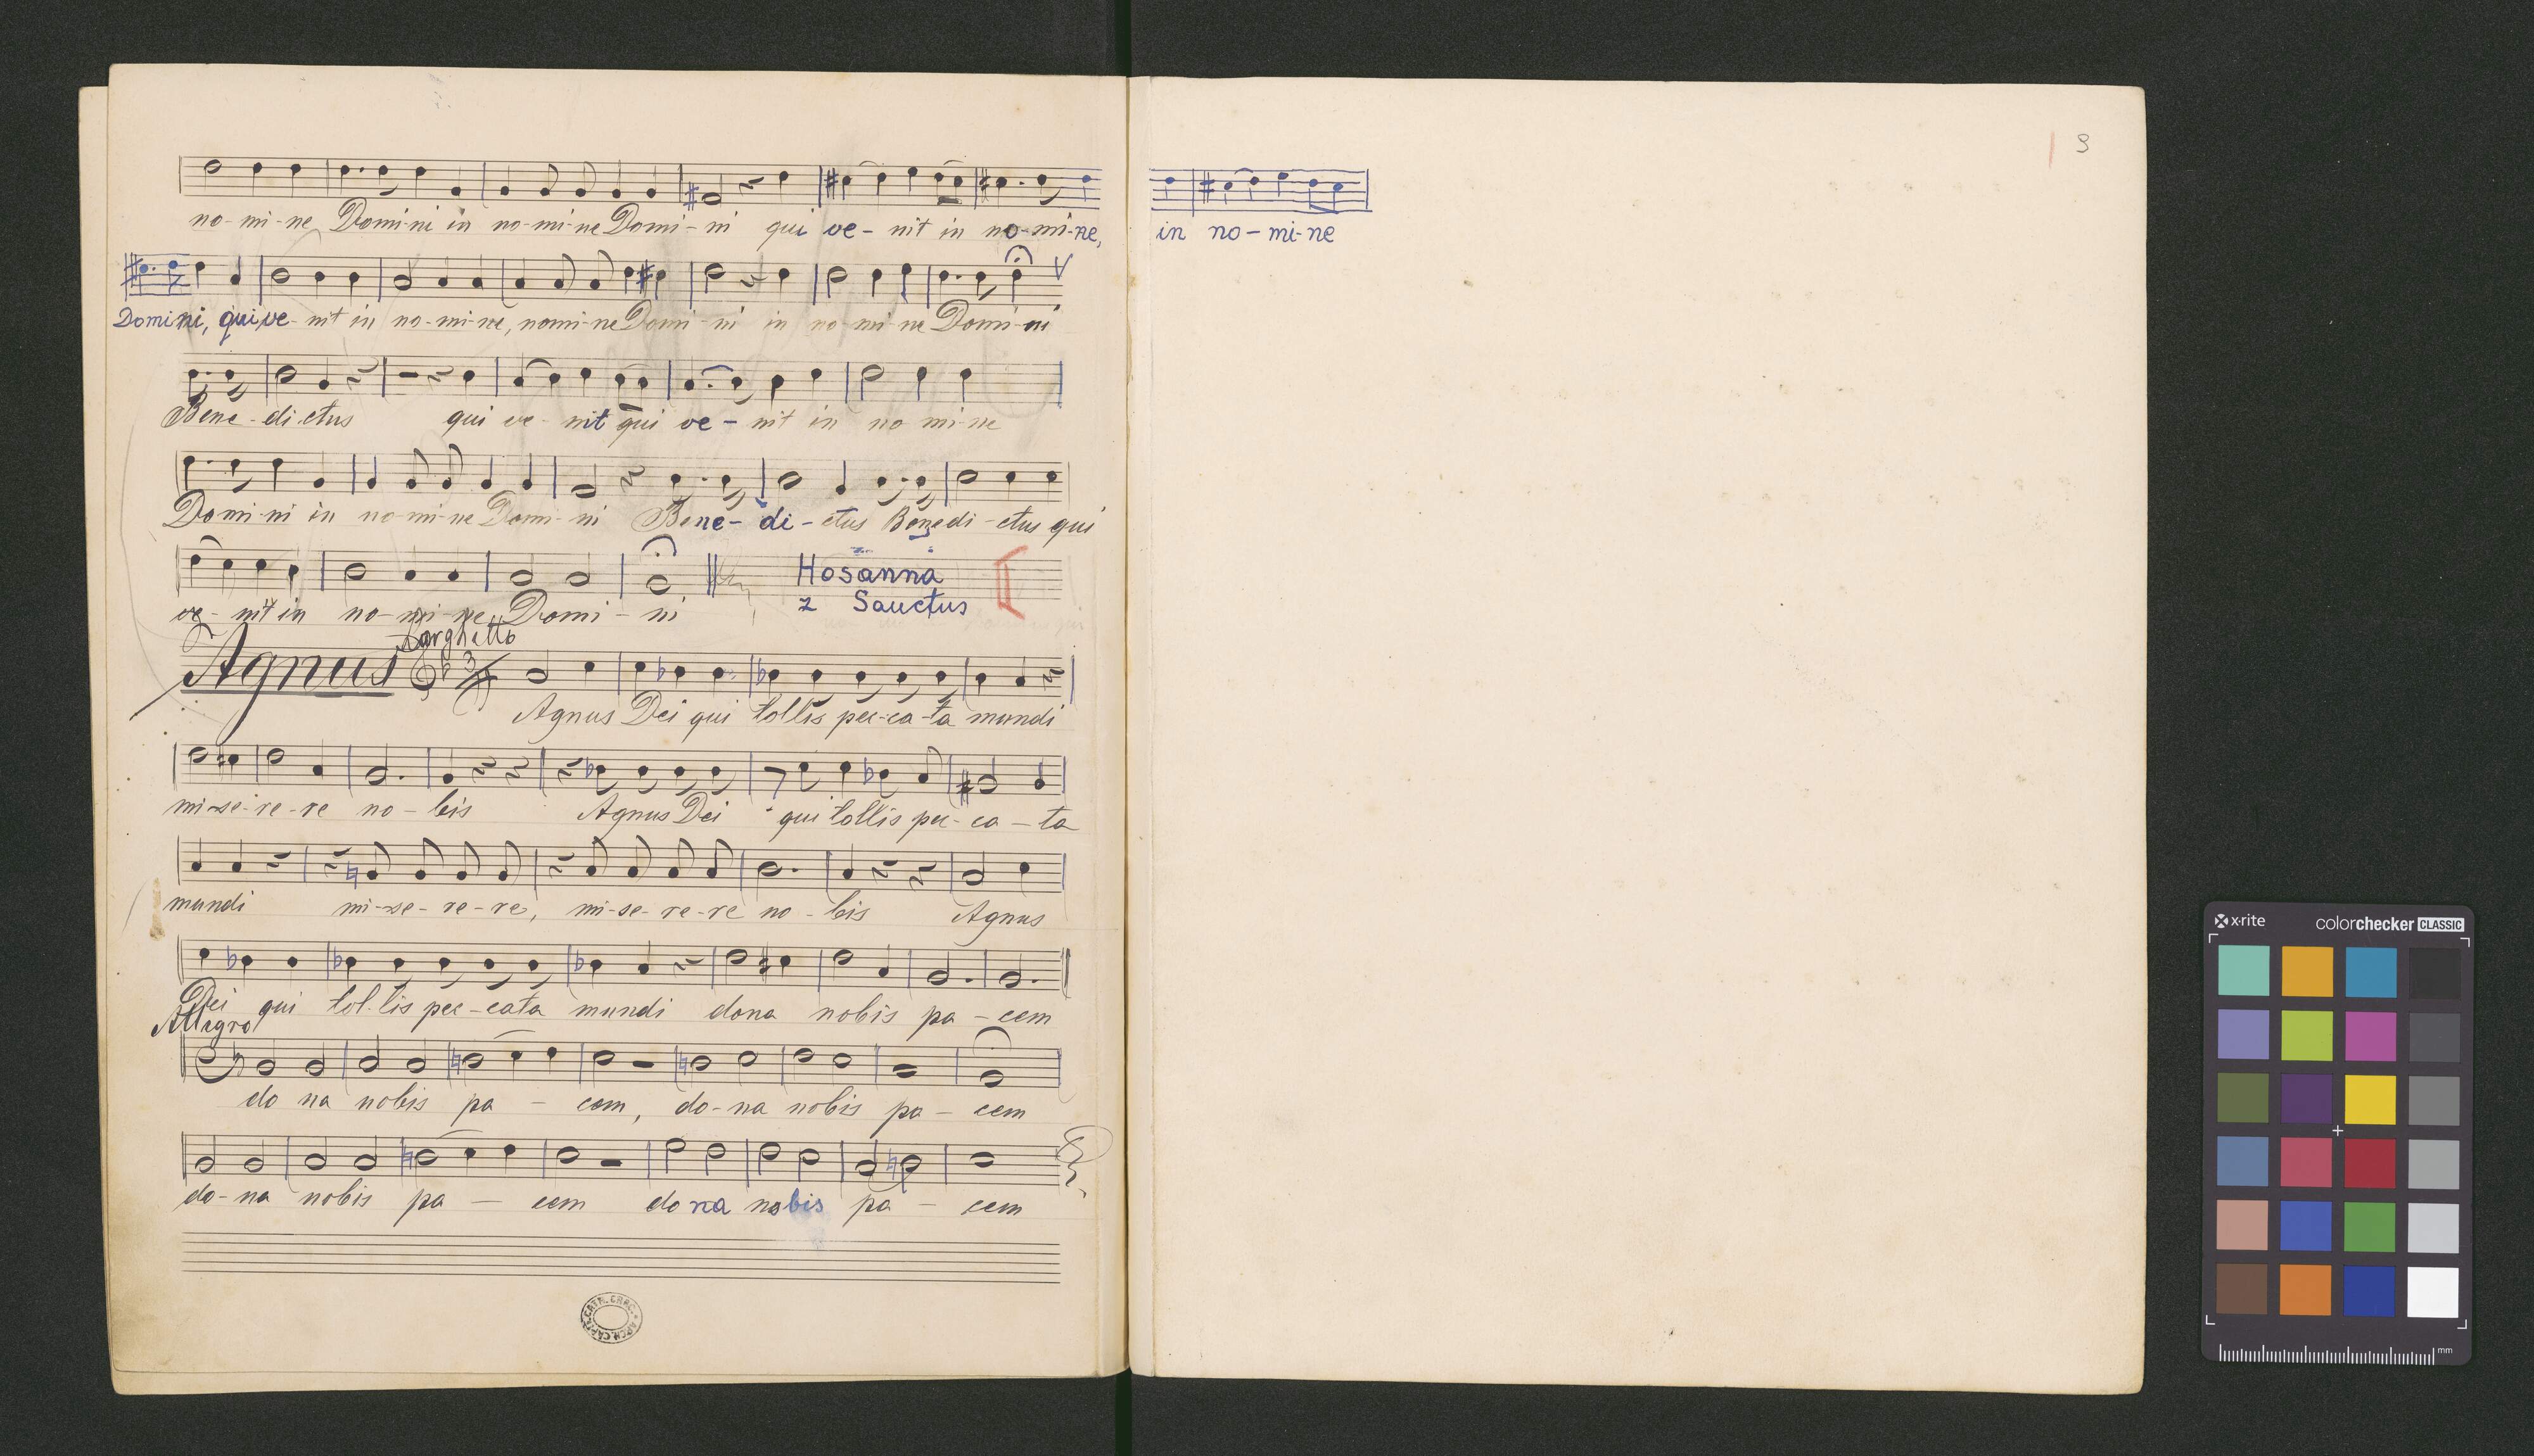 3
no-mi-ne Domi-ni in no-mi-ne Domi-ni qui ve-nit in no-mi-ne, in no-mi-ne
Domini, qui ve-nit in no-mi-ne, nomi-ne Domi-ni in no-mi-ne Domi-ni
Bene-di-ctus qui ve-nit qui ve-nit in no mi-ne
Domi-ni in no-mi-ne Domi-ni Bene-di-ctus Benedi-ctus qui
ve-nit in no-mi-ne Domi-ni Hosanna
z Sanctus
Larghetto
Agnus
Agnus Dei qui tollis pec-ca-ta mundi
mi-se-re-re no-bis Agnus Dei qui tollis pec-ca-ta
mundi mi-se-re-re, mi-se-re-re no-bis Agnus
Dei qui tol-lis pec-cata mundi dona nobis pa-cem
Allegro
do na nobis pa-cem, do-na nobis pa-cem
do-na nobis pa-cem do na nobis pa-cem
x-rite colorchecker CLASSIC
mm